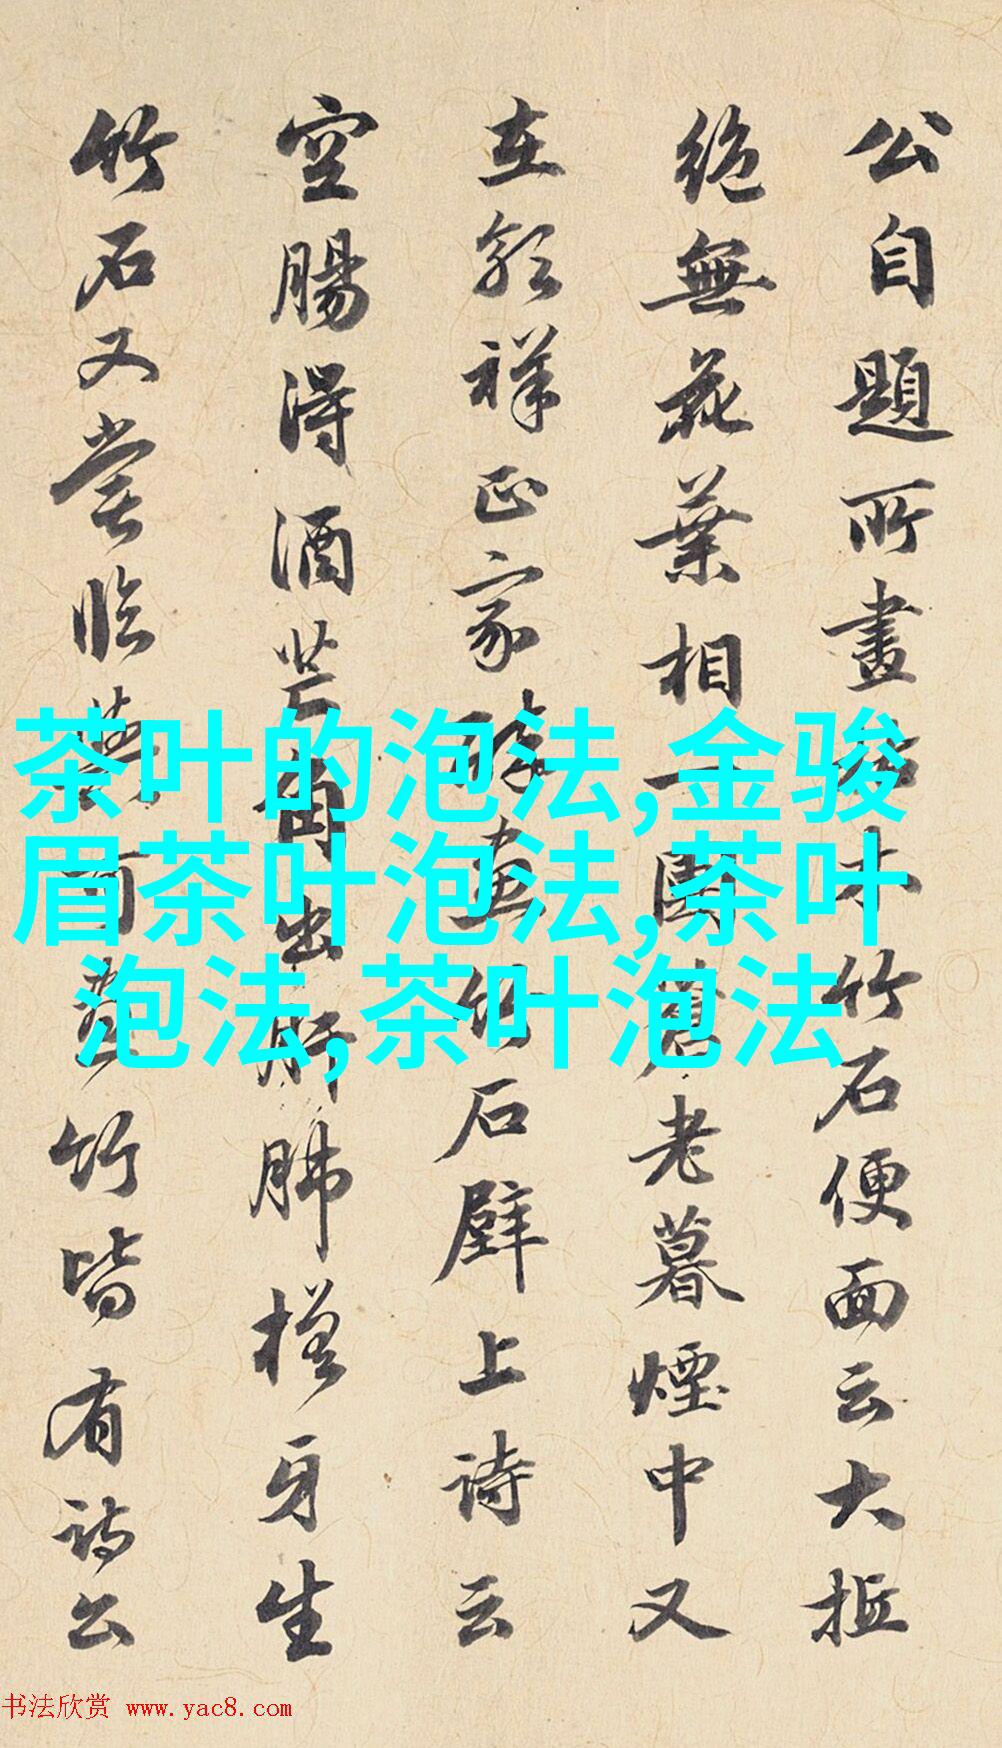 公自題所畫古木竹石便面云大抵
絶無花葉相一團蒼老暮煙中又
在郭祥正家醉畫竹石壁上诗云
空腸得酒芒角出肝肺槎牙生
竹石又嘗臨與可畫竹皆有詩公
茶叶的泡法,金骏
眉茶叶泡法,茶叶
泡法,茶叶泡法
书法欣赏 www.yac8.com